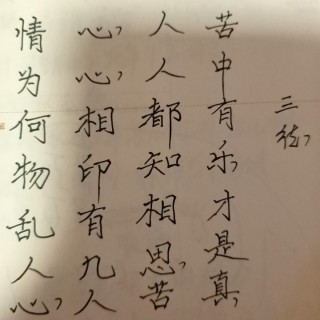 情为何物乱人心
心心相印有九人
人人都知相思苦
苦中有乐才是真
三